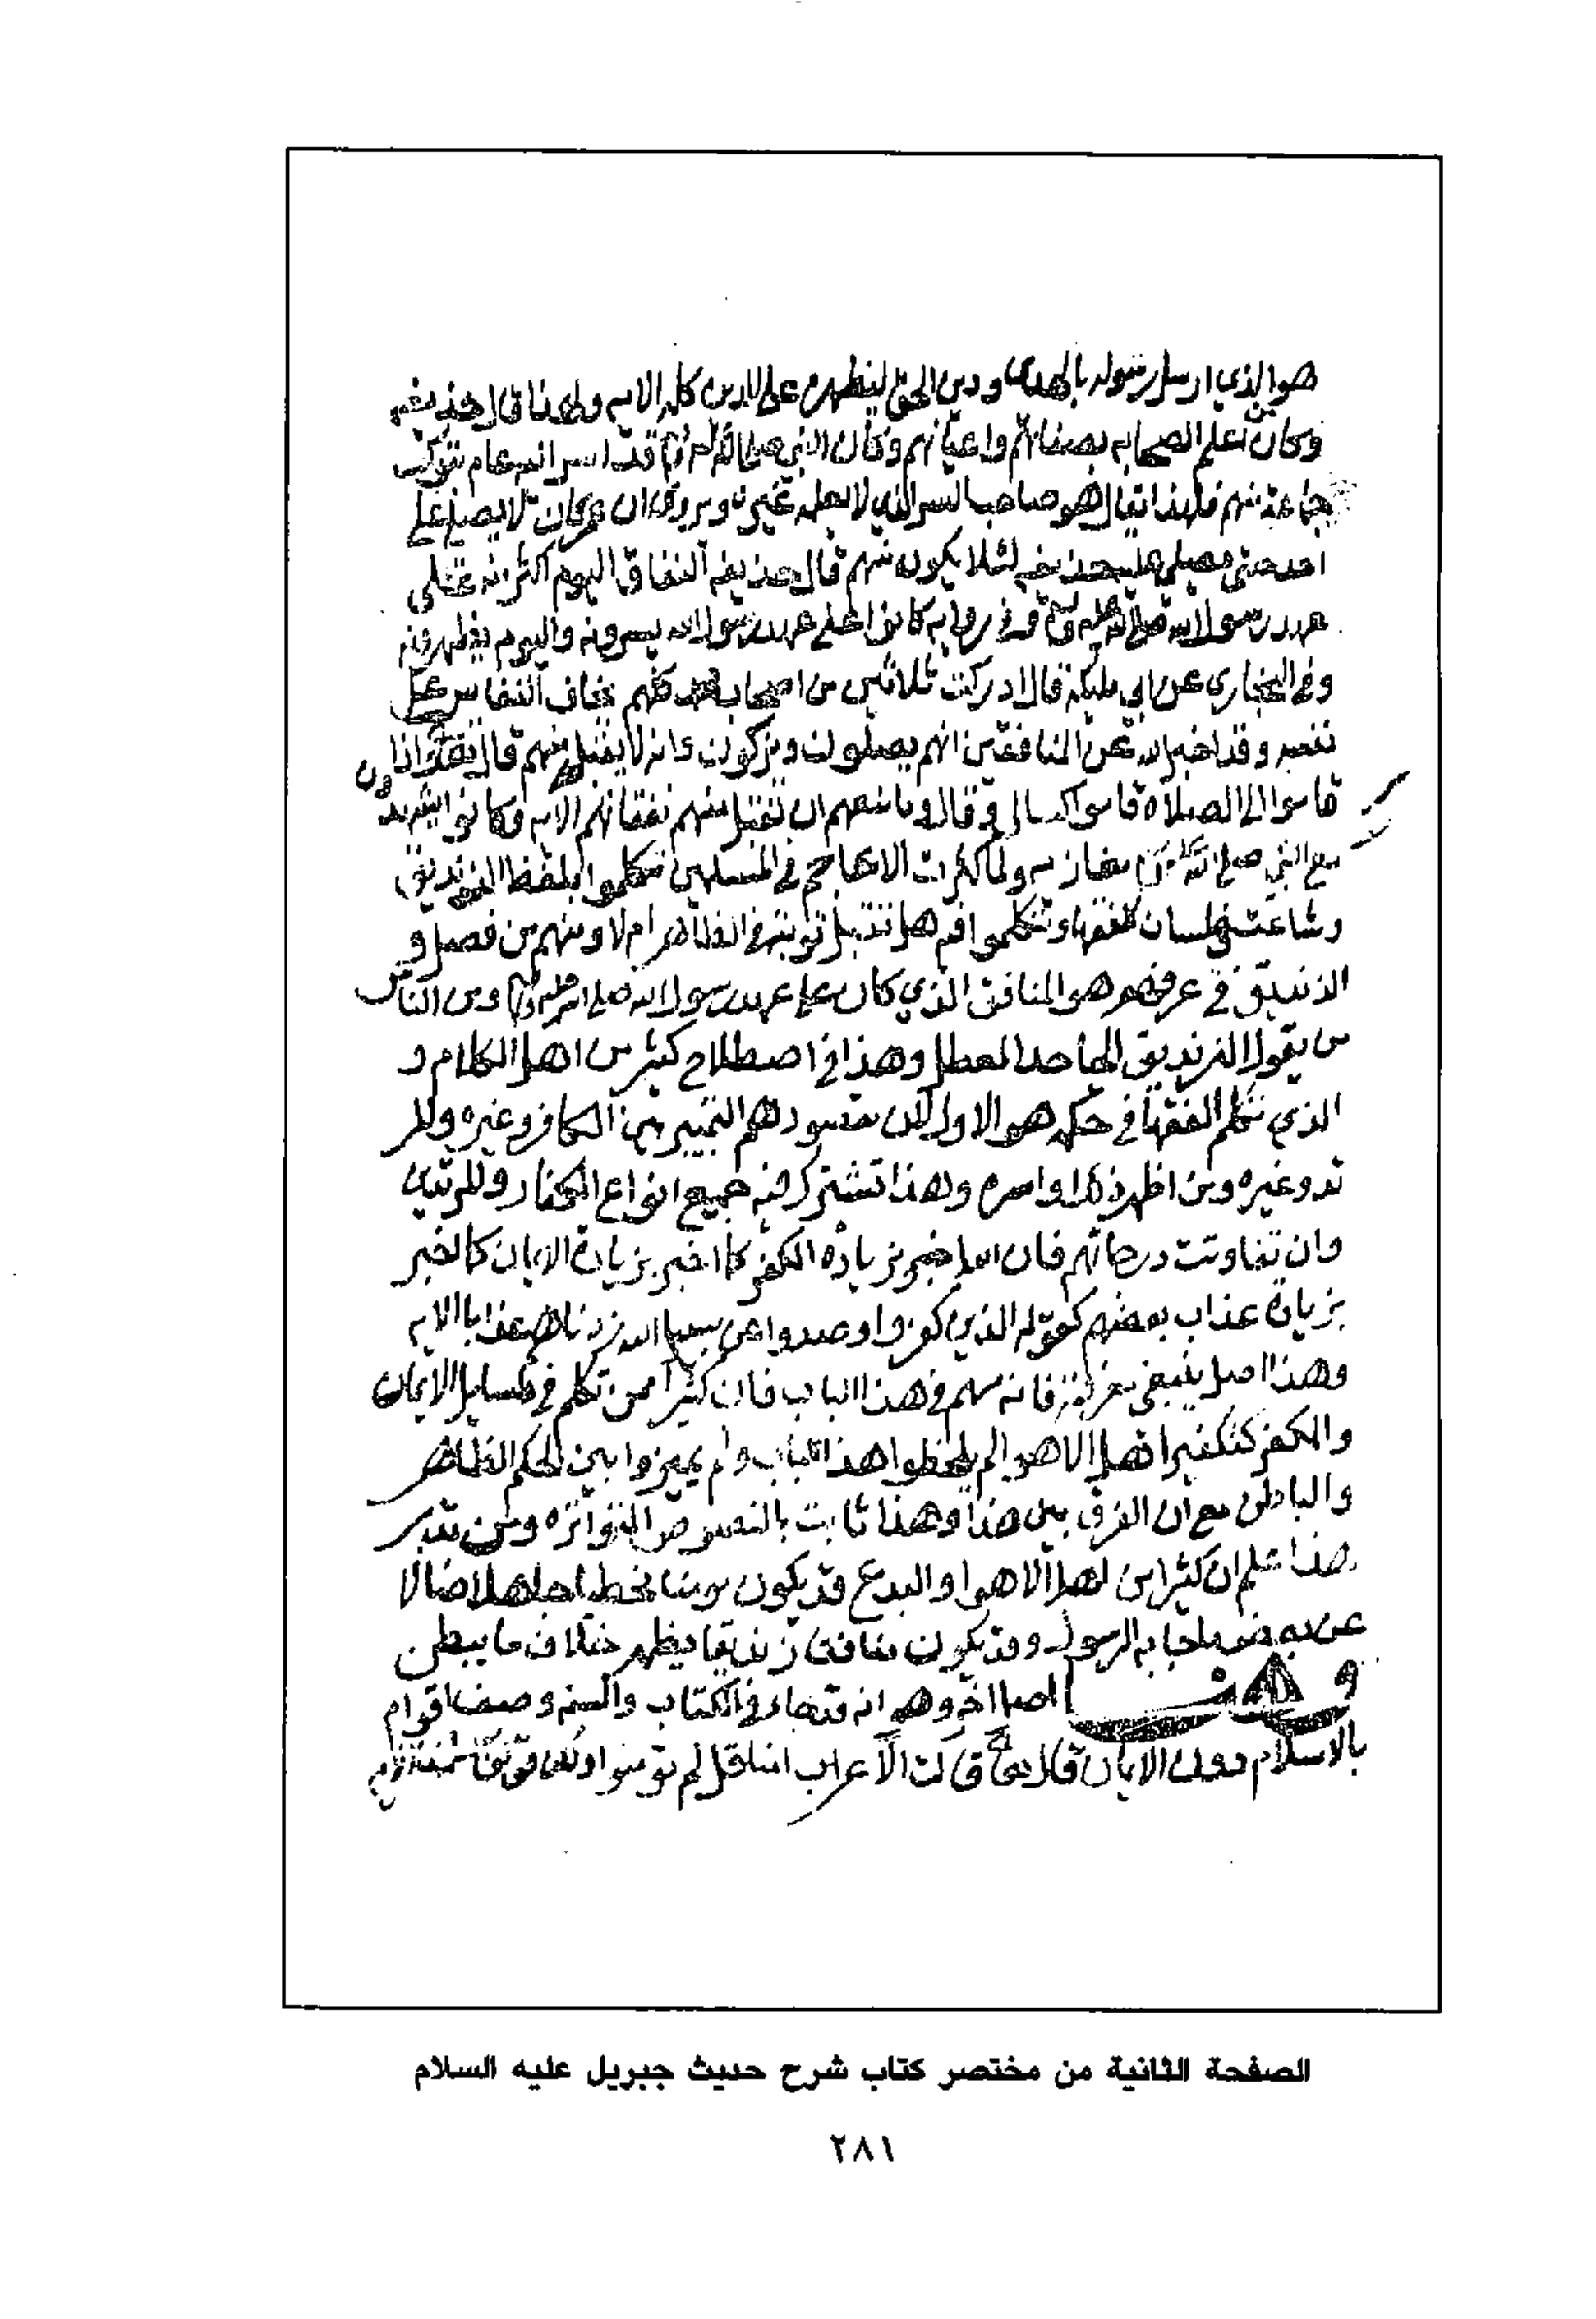 هو الذي ارسل رسوله بالهدى ودين الحق ليظهره على الدين كله الايه ولهذا قال حذيفه
وكان من اعلم الصحابه بصفاتهم واعيانهم وكان النبي صلى الله عليه وسلم قد اسر اليه عام تبوك
جماعة منهم فلهذا يقال هو صاحب السر الذي لا يعلمه غيره ويروى ان عمر كان لا يصلي على
احد حتى يصلي عليه حذيفه لئلا يكون منهم قال حذيفه النفاق اليوم اكثر منه على
عهد رسول الله صلى الله عليه وسلم وفي روايه كانوا على عهد رسول الله يسرونه واليوم يظهرونه
وفي البخاري عن ابي مليكة قال ادركت ثلاثين من اصحاب محمد كلهم يخاف النفاق على
نفسه وقد اخبر الله عن المنافقين انهم يصلون ويزكون وانه لا يقبل منهم قال تعالى واذا
قاموا الى الصلاة قاموا كسالى وقال وما منعهم ان تقبل منهم نفقاتهم الايه وكانوا يشهدون
مع النبي صلى الله عليه وسلم مغازيه ولما كثرت الاعاجم في المسلمين تكلموا بلفظ الزنديق
وشاعت في لسان الفقهاء وتكلموا فيه هل تقبل توبته في الظاهر ام لا ومنهم من فصل و
الزنديق في عرفهم هو المنافق الذي كان على عهد رسول الله صلى الله عليه وسلم ومن الناس
من يقول الزنديق الجاحد المعطل وهذا في اصطلاح كثير من اهل الكلام و
الذي تكلم الفقها في حكمه هو الاول لان مقصودهم التمييز بين الكافر وغيره والمر
تد وغيره ومن اظهر ذلك او اسره وهذا تشترك فيه جميع انواع الكفار والمرتدين
وان تفاوتت درجاتهم فان الله اخبر بزيادة الكفر كما اخبر بزيادة الايمان كما اخبر
بزيادة عذاب بعضهم كقوله الذين كفروا وصدوا عن سبيل الله زدناهم عذابا الايه
وهذا اصل ينبغي معرفته فانه مهم في هذا الباب فان كثيرا ممن تكلم في مسايل الايمان
والكفر كتكفير اهل الاهوا لم يلحظوا هذا الباب ولم يميزوا بين الحكم الظاهر
والباطن مع ان الفرق بين هذا وهذا ثابت بالنصوص المتواتره ومن تدبر
هذا علم ان كثيرا من اهل الاهوا والبدع قد يكون مومنا مخطيا جاهلا ضالا
عن بعض ما جا به الرسول وقد يكون منافقا زنديقا يظهر خلاف ما يبطن
اصل اخر وهو انه قد جاء في الكتاب والسنه وصف اقوام
بالاسلام دون الايمان قال تعالى قالت الاعراب امنا قل لم تومنوا ولكن قولوا اسلمنا
الصفحة الثانية من مختصر كتاب شرح حديث جبريل عليه السلام
٢٨١